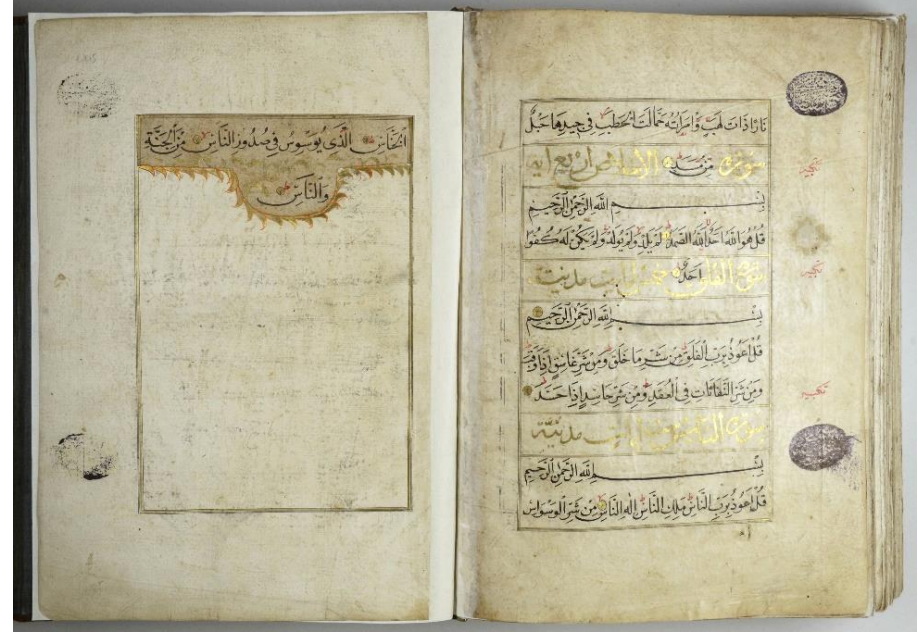 نَارًا ذَاتَ لَهَبٍ وَامْرَأَتُهُ حَمَّالَتَ الْحَطَبِ فِي جِيدِهَا حَبْلٌ
سورة مِنْ مَسَدٍ الإخلاص اربع ايه
تكبير
بِسْمِ اللَّهِ الرَّحْمٰنِ الرَّحِيمِ
قُلْ هُوَ اللَّهُ اَحَدٌ اَللَّهُ الصَّمَدُ لَمْ يَلِدْ وَلَمْ يُولَدْ وَلَمْ يَكُنْ لَهُ كُفُوًا
سورة الفلق اَحَدٌ مدنيّة
تكبير
بِسْمِ اللَّهِ الرَّحْمٰنِ الرَّحِيمِ
قُلْ اَعُوذُ بِرَبِّ الْفَلَقِ مِنْ شَرِّ مَا خَلَقَ وَمِنْ شَرِّ غَاسِقٍ اِذَا وَقَبَ
وَمِنْ شَرِّ النَّفَّاثَاتِ فِي الْعُقَدِ وَمِنْ شَرِّ حَاسِدٍ اِذَا حَسَدَ
تكبير
سورة الناس مدنيّة
بِسْمِ اللَّهِ الرَّحْمٰنِ الرَّحِيمِ
قُلْ اَعُوذُ بِرَبِّ النَّاسِ مَلِكِ النَّاسِ اِلٰهِ النَّاسِ مِنْ شَرِّ الْوَسْوَاسِ
الْخَنَّاسِ الَّذِي يُوَسْوِسُ فِي صُدُورِ النَّاسِ مِنَ الْجِنَّةِ
وَالنَّاسِ